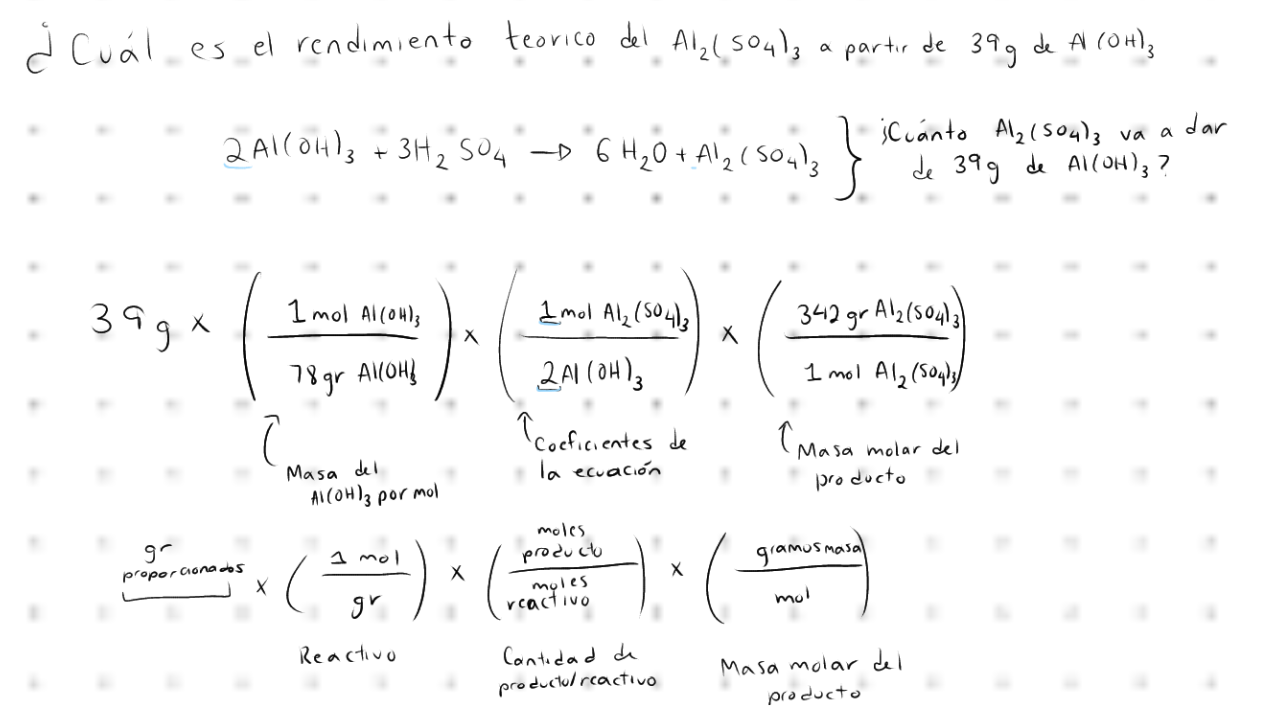 ¿Cuál es el rendimiento teorico del Al₂(SO₄)₃ a partir de 39g de Al(OH)₃
2Al(OH)₃ + 3H₂SO₄ → 6H₂O + Al₂(SO₄)₃ } ¡Cuánto Al₂(SO₄)₃ va a dar
de 39g de Al(OH)₃?
39g x (1 mol Al(OH)₃ / 78gr Al(OH)₃) x (1mol Al₂(SO₄)₃ / 2Al(OH)₃) x (342 gr Al₂(SO₄)₃ / 1 mol Al₂(SO₄)₃)
Masa del
Al(OH)₃ por mol
Coeficientes de
la ecuación
Masa molar del
producto
gr proporcionados x (1 mol / gr) x (moles producto / moles reactivo) x (gramos masa / mol)
Reactivo
Cantidad de
producto/reactivo
Masa molar del
producto